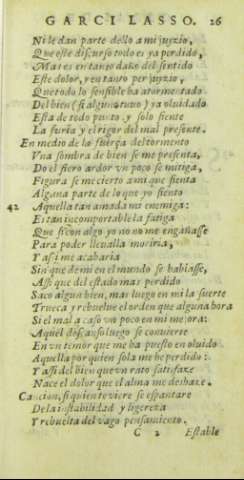 GARCI LASSO. 26
Ni le dan parte dello a mi juyzio,
Que este discurso todo es ya perdido,
Mas es en tanto daño del sentido
Este dolor, y en tanto perjuyzio,
Que todo lo sensible ha atormentado
Del bien (si alguno tuuo) ya oluidado
Esta de todo punto, y solo siente
La furia y el rigor del mal presente.
En medio de la fuerça del tormento
Vna sombra de bien se me presenta,
Do el fiero ardor vn poco se mitiga,
Figura se me cierto a mi que sienta
Alguna parte de lo que yo siento
42 Aquella tan amada mi enemiga:
Es tan incomportable la fatiga
Que si con algo yo no me engañasse
Para poder lleualla moriria,
Y assi me acabaria
Sin que de mi en el mundo se hablasse,
Assi que del estado mas perdido
Saco algun bien, mas luego en mi la suerte
Trueca y rebuelue el orden que alguna hora
Si el mal a caso vn poco en mi mejora:
Aquel descanso luego se conuierte
En vn temor que me ha puesto en oluido
Aquella por quien sola me he perdido:
Y assi del bien que vn rato satisfaze
Nace el dolor que el alma me deshaze.
Cancion, si quien te viere se espantare
De la instabilidad y ligereza
Y rebuelta del vago pensamiento.
C 2 Estable